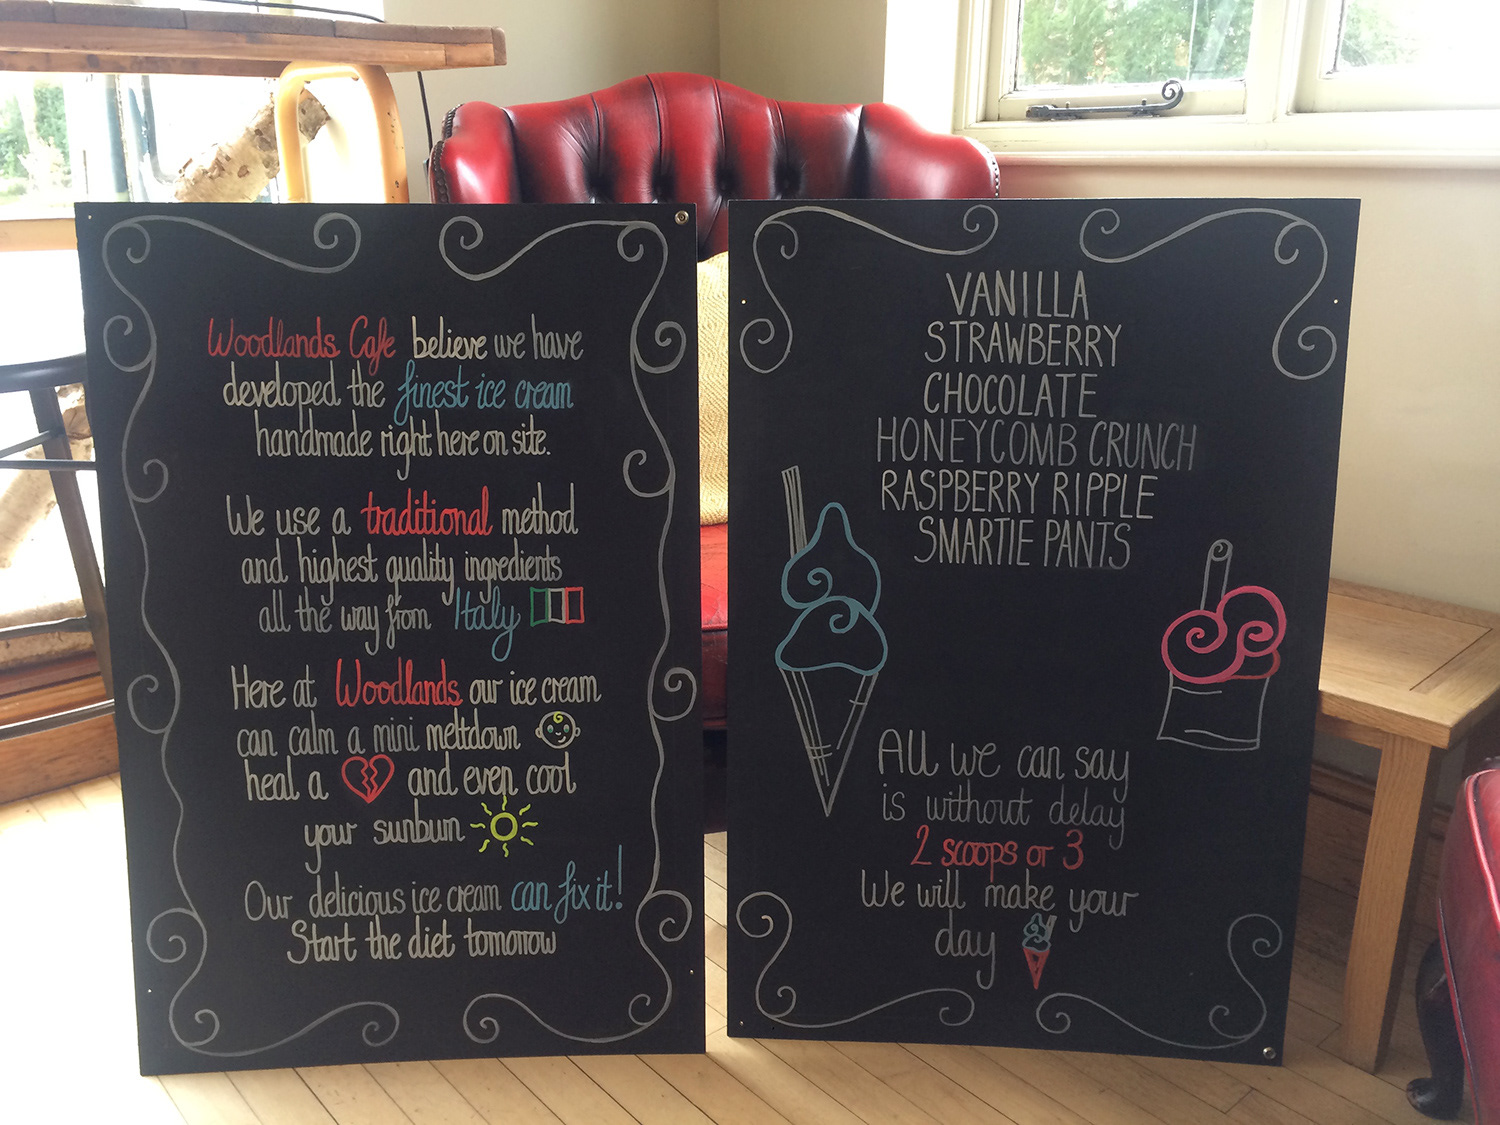 Woodlands Cafe believe we have
developed the finest ice cream
handmade right here on site.
We use a traditional method
and highest quality ingredients
all the way from Italy
Here at Woodlands our ice cream
can calm a mini meltdown
heal a and even cool
your sunburn
Our delicious ice cream can fix it!
Start the diet tomorrow
VANILLA
STRAWBERRY
CHOCOLATE
HONEYCOMB CRUNCH
RASPBERRY RIPPLE
SMARTIE PANTS
All we can say
is without delay
2 scoops or 3
We will make your
day